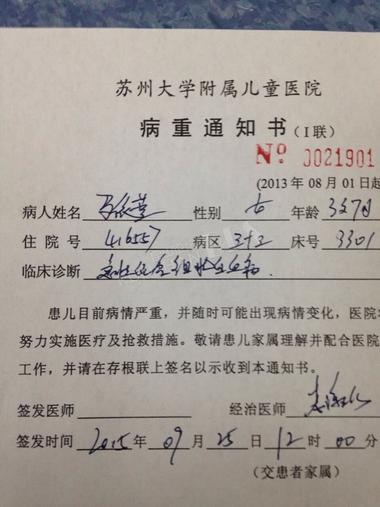 苏州大学附属儿童医院
病重通知书(I联)
Nº 0021901
(2013年08月01日起
病人姓名 性别 女 年龄 3岁7月
住院号 416557 病区 3+3 床号 3301
临床诊断 急性
患儿目前病情严重,并随时可能出现病情变化,医院
努力实施医疗及抢救措施。敬请患儿家属理解并配合医院
工作,并请在存根联上签名以示收到本通知书。
签发医师 经治医师
签发时间 2015年09月25日12时00分
(交患者家属)